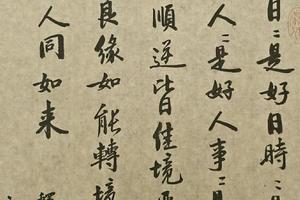 日〻是好日時〻
人〻是好人事〻
順逆皆佳境
良緣如能轉境
人同如來